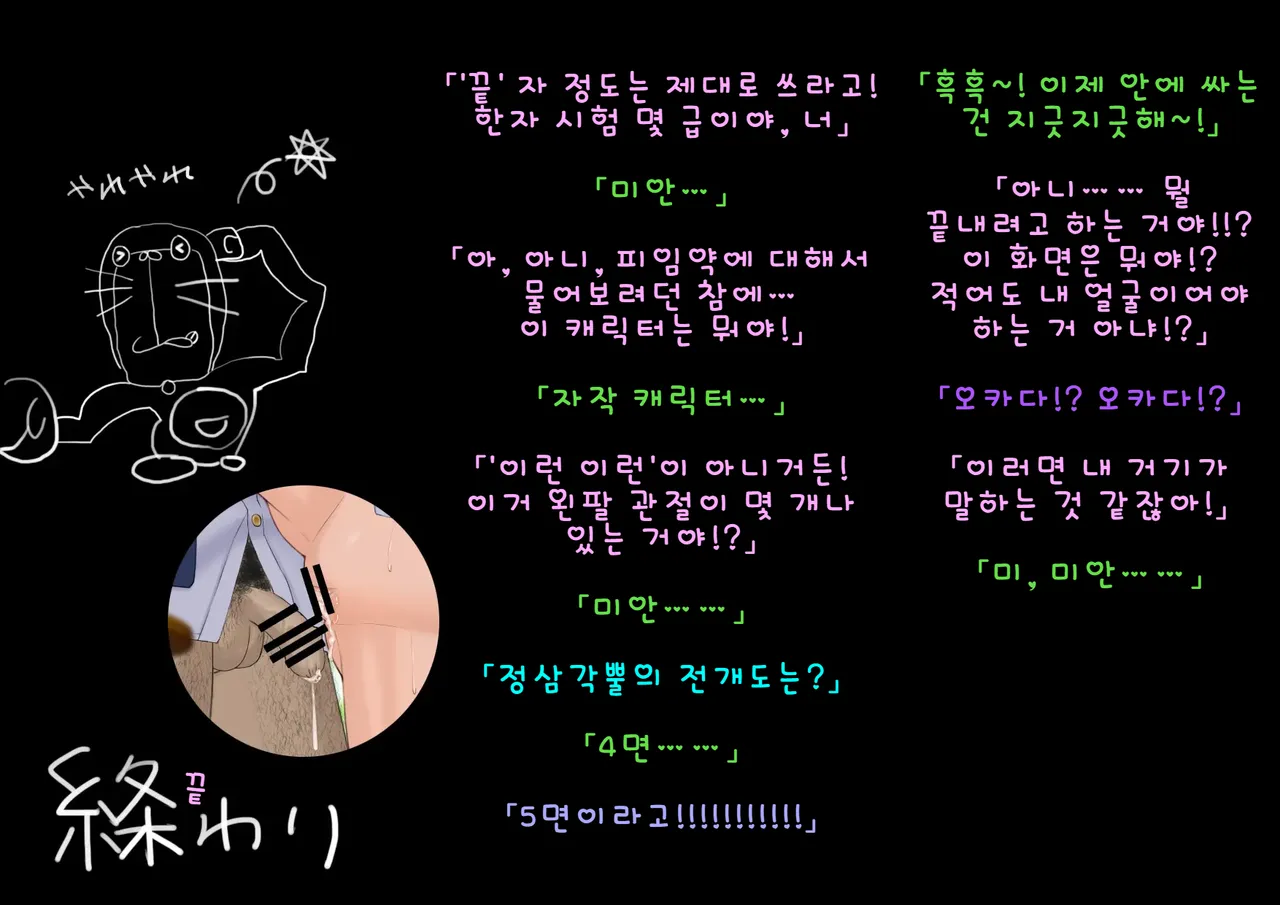 「흑흑~! 이제 안에 싸는
건 지긋지긋해~!」
「아니…… 뭘
끝내려고 하는 거야!!?
이 화면은 뭐야!?
적어도 내 얼굴이어야
하는 거 아냐!?」
「오카다!? 오카다!?」
「이러면 내 거기가
말하는 것 같잖아!」
「미, 미안……」
「'끝' 자 정도는 제대로 쓰라고!
한자 시험 몇 급이야, 너」
「미안…」
「아, 아니, 피임약에 대해서
물어보려던 참에…
이 캐릭터는 뭐야!」
「자작 캐릭터…」
「'이런 이런'이 아니거든!
이거 왼팔 관절이 몇 개나
있는 거야!?」
「미안……」
「정삼각뿔의 전개도는?」
「4면……」
「5면이라고!!!!!!!!!!!」
やれやれ
끝
わり